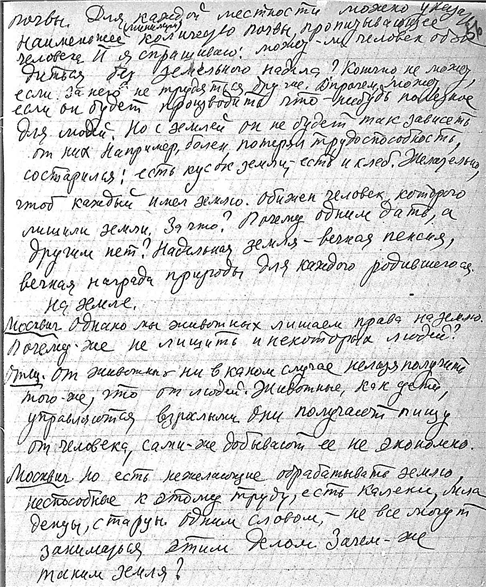 почвы. Для каждой местности можно указать
наименьшее количество почвы, пропитывающее
минимум
человека. И я спрашиваю: может ли человек обхо-
диться без земельного надела? Конечно не может,
если за него не трудятся другие. Впрочем может,
если он будет производить что-нибудь полезное
для людей. Но с землей он не будет так зависеть
от них. Например, болен, потерял трудоспособность,
состарился: есть кусок земли, – есть и хлеб. Желательно,
чтоб каждый имел землю. Обижен человек, которого
лишили земли. За что? Почему одним дать, а
другим нет? Надельная земля – вечная пенсия,
вечная награда природы для каждого родившегося
на земле.
Москвич Однако мы животных лишаем права на землю.
Почему-же не лишить и некоторых людей?
От животных ни в каком случае нельзя получить
того-же, что от людей. Животные, как дети,
управляются взрослыми. Они получают пищу
от человека, сами-же добывают ее не экономно.
Москвич Но есть нежелающие обрабатывать землю,
неспособные к этому труду, есть калеки, мла
денцы, старцы. Одним словом, – не все могут
заниматься этим делом. Зачем-же
таким земля?